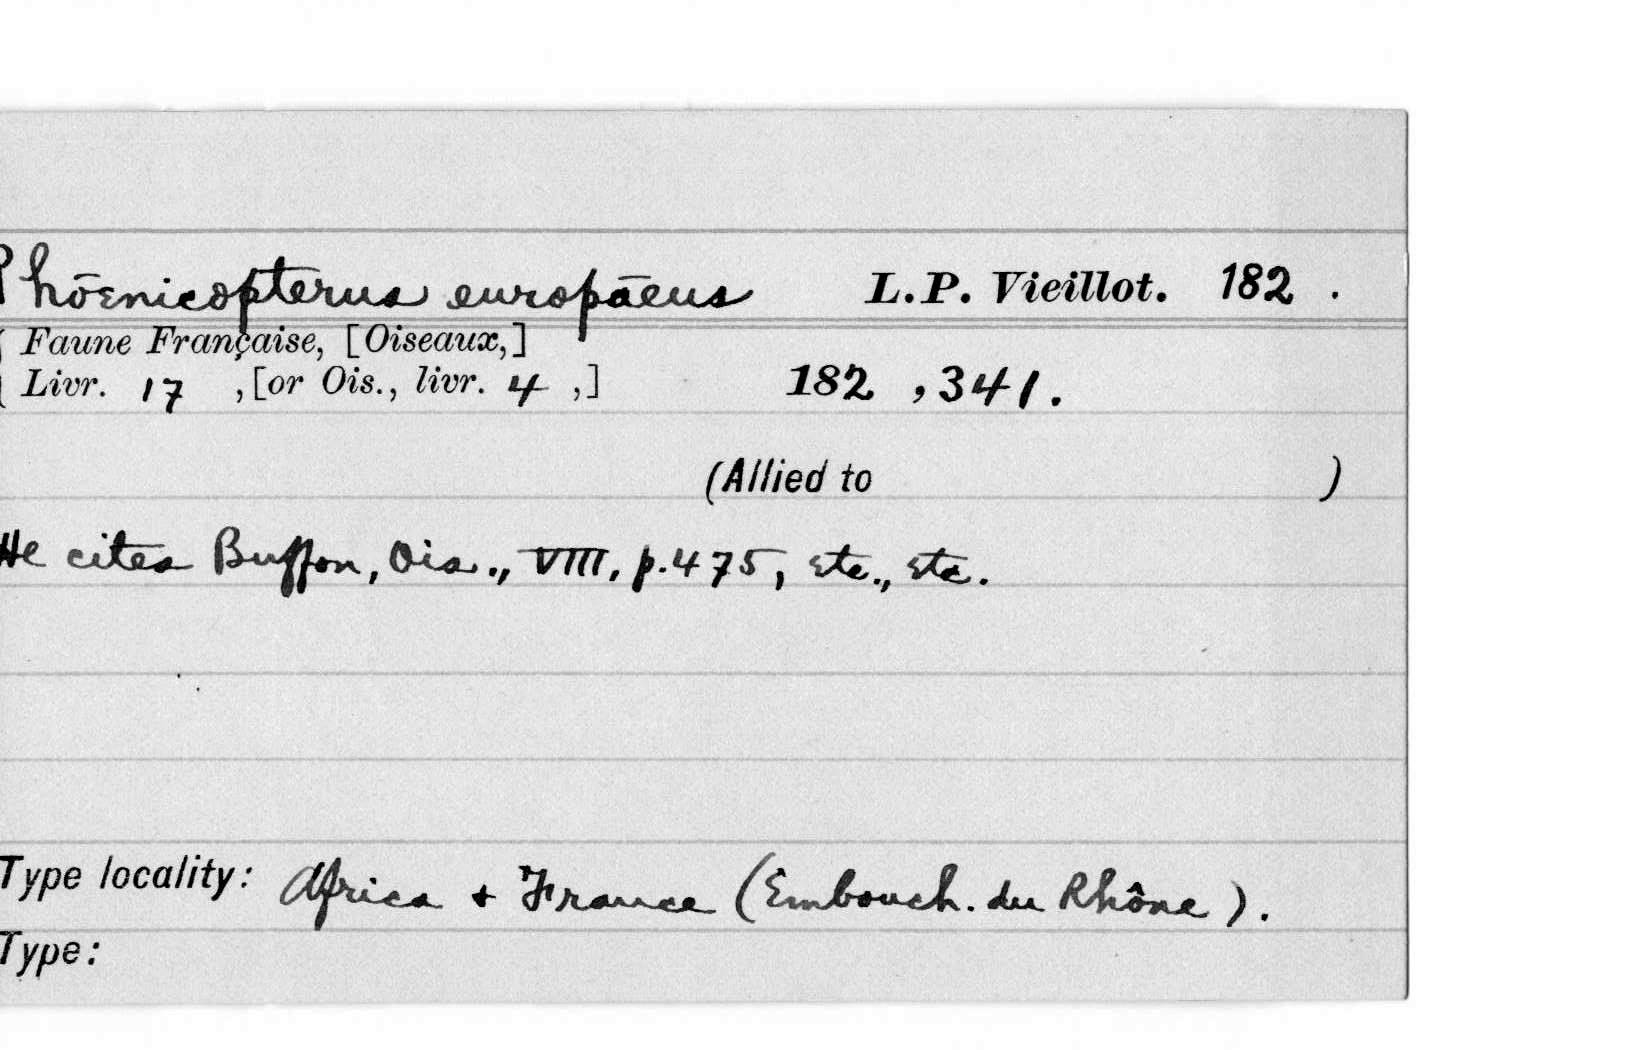 Phōenicopterus europāeus L.P. Vieillot. 182 .
( Faune Française, [Oiseaux,]
( Livr. 17 ,[or Ois., livr. 4 ,] 182 ,341.
(Allied to )
He cites Buffon, Ois., VIII, p.475, etc., etc.
Type locality: Africa + France (Embouch. du Rhône).
Type: